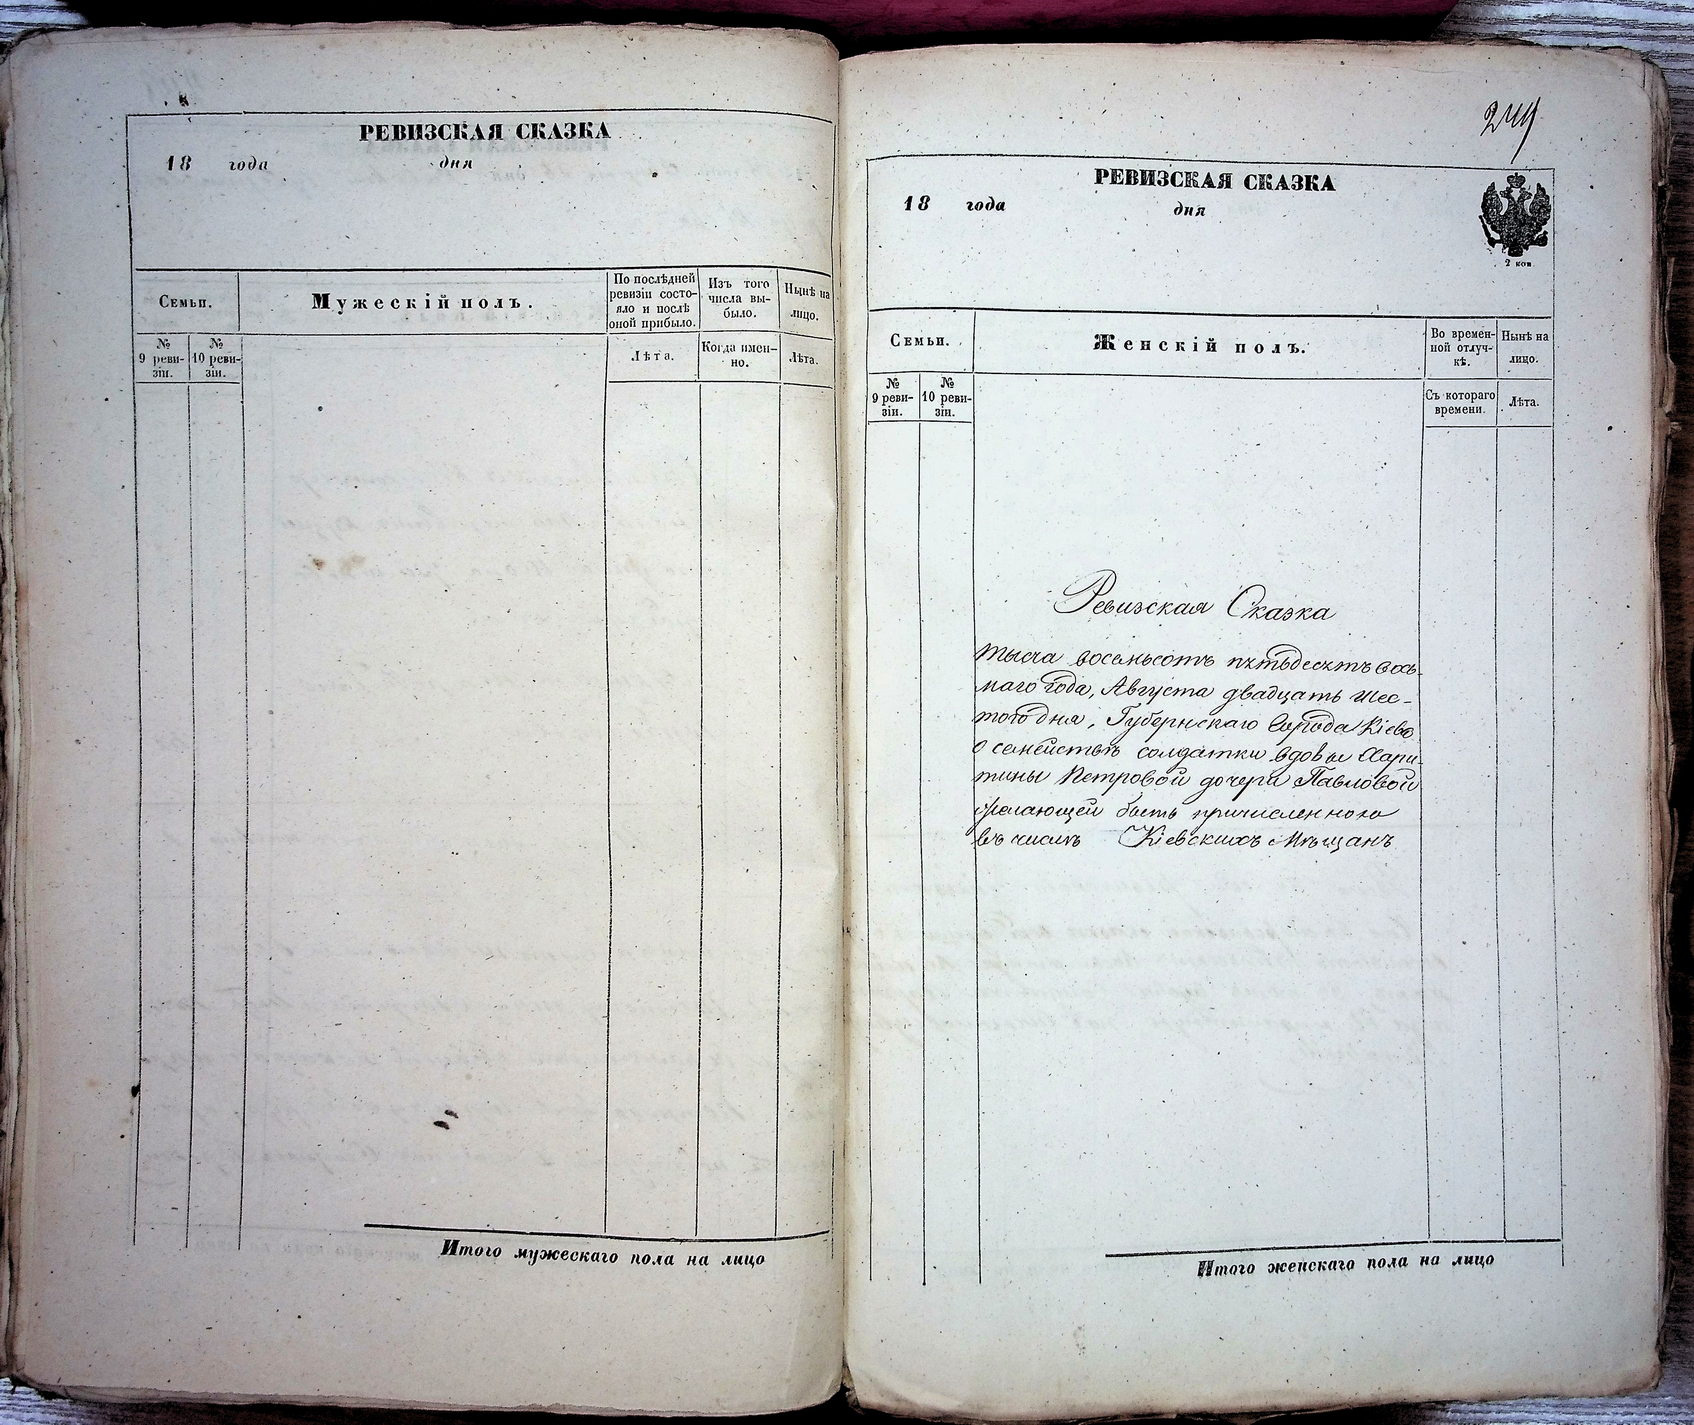 РЕВИЗСКАЯ СКАЗКА
18 года дня
Семьи.
Мужескій полъ.
По послѣдней
ревизіи состо-
яло и послѣ
оной прибыло.
Изъ того
числа вы-
было.
Нынѣ на
лицо.
№
9 реви-
зіи.
№
10 реви-
зіи.
Лѣта.
Когда имен-
но.
Лѣта.
Итого мужескаго пола на лицо
249
РЕВИЗСКАЯ СКАЗКА
18 года дня
2 коп
Семьи.
Женскій полъ.
Во времен-
ной отлуч-
кѣ.
Нынѣ на
лицо.
№
9 реви-
зіи.
№
10 реви-
зіи.
Съ котораго
времени.
Лѣта.
Ревизская Сказка
тысча восемьсотъ пятьдесятъ вось-
маго года, Августа двадцать шес-
того дня, Губернскаго Города Кіева
о семействѣ солдатки вдовы Хари-
тины Петровой дочери Павловой
желающей быть причисленною
въ число Кіевскихъ Мѣщанъ
Итого женскаго пола на лицо